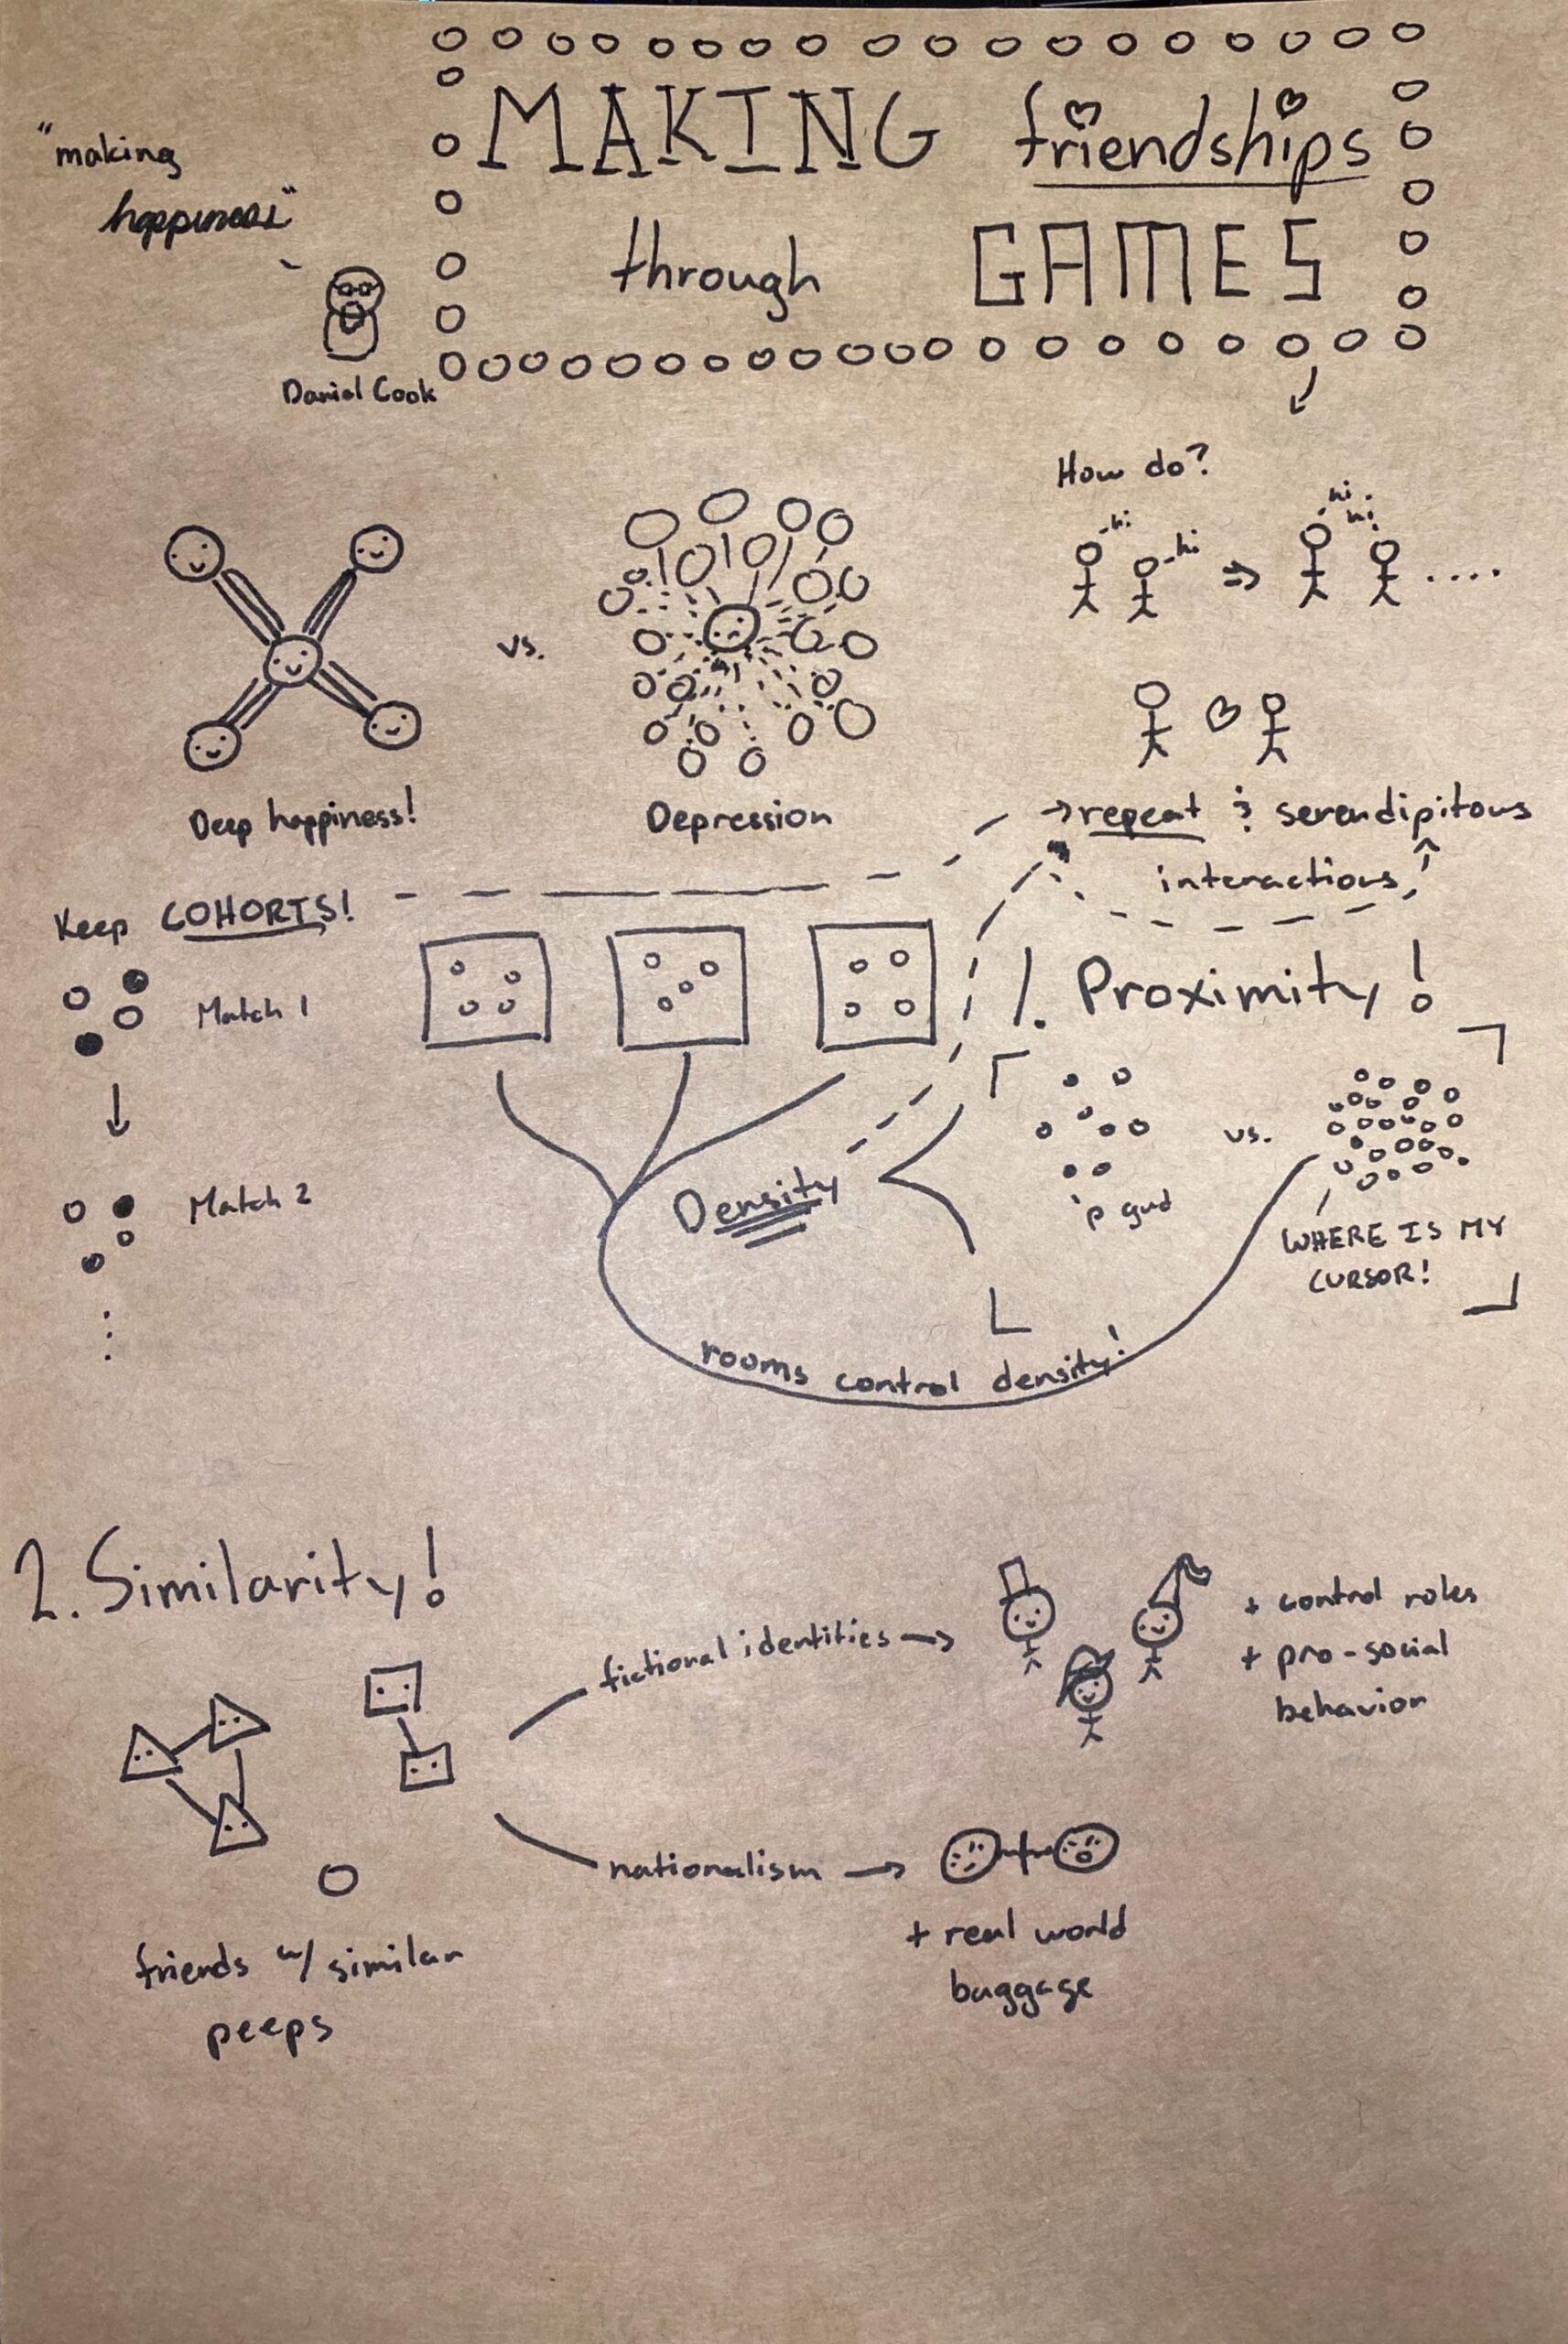 MAKING friendships
through GAMES
"making
happiness"
Daniel Cook
How do?
hi
hi
hi
hi
vs.
Deep happiness!
Depression
→repeat & serendipitous
interactions
Keep COHORTS!
Match 1
Match 2
1. Proximity!
Density
'p gud
vs.
WHERE IS MY
CURSOR!
rooms control density!
2. Similarity!
friends w/ similar
peeps
fictional identities →
+ control roles
+ pro-social
behavior
nationalism →
+ real world
baggage